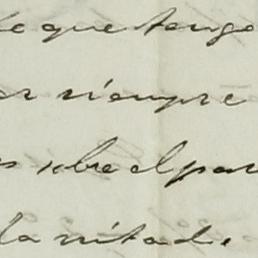 que tengo
siempre
sobre el par
la mitad.